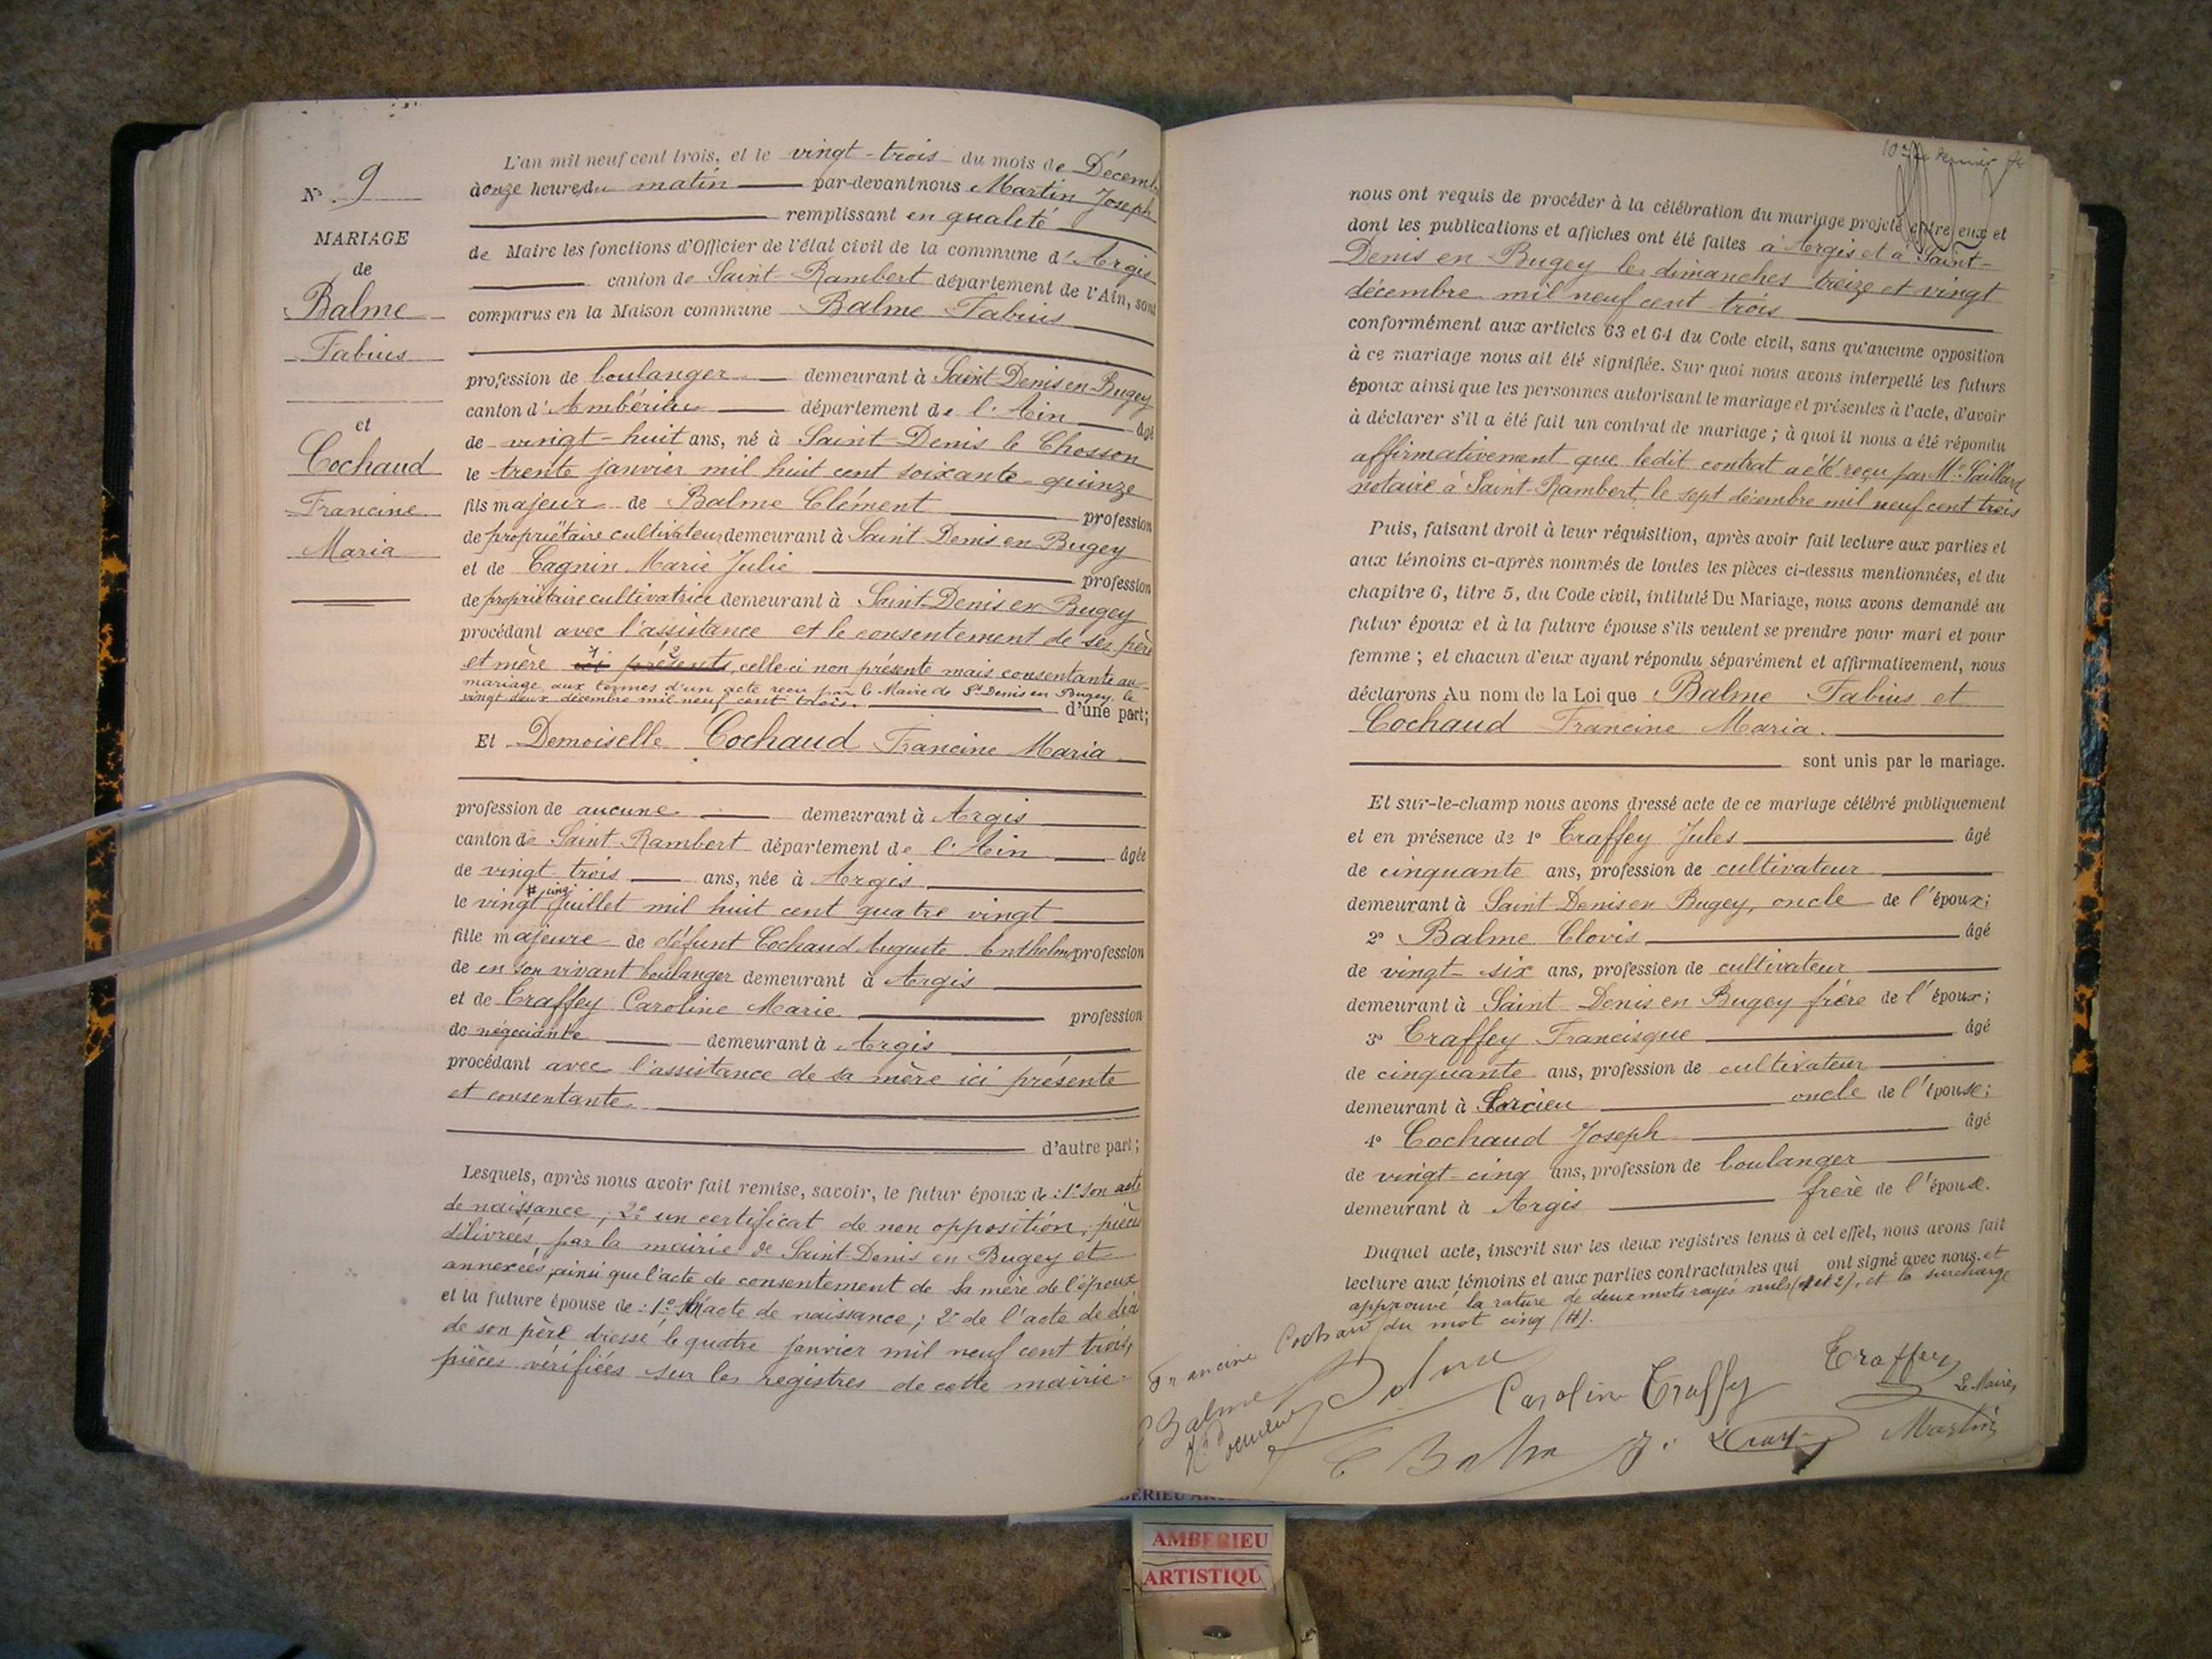 N° 9
MARIAGE
de
Balme
Fabius
et
Cochaud
Francine
Maria
L'an mil neuf cent trois, et le vingt-trois du mois de Décemb
à onze heures du matin par-devant nous Martin Joseph
remplissant en qualité
de Maire les fonctions d'Officier de l'état civil de la commune d'Argis
canton de Saint-Rambert département de l'Ain, sont
comparus en la Maison commune Balme Fabius
profession de boulanger demeurant à Saint-Denis en Bugey
canton d'Ambérieu département de l'Ain âgé
de vingt-huit ans, né à Saint-Denis le Chosson
le trente janvier mil huit cent soixante-quinze
fils majeur de Balme Clément profession
de propriétaire cultivateur demeurant à Saint-Denis en Bugey
et de Cagnin Marie Julie profession
de propriétaire cultivatrice demeurant à Saint-Denis en Bugey
procédant avec l'assistance et le consentement de ses père
et mère ici présents, celle-ci non présente mais consentante au
mariage aux termes d'un acte reçu par le Maire de St Denis en Bugey, le
vingt-deux décembre mil neuf cent trois. d'une part;
Et Demoiselle Cochaud Francine Maria
profession de aucune demeurant à Argis
canton de Saint-Rambert département de l'Ain âgée
de vingt trois ans, née à Argis
le vingt # cinq juillet mil huit cent quatre vingt
fille majeure de défunt Cochaud Auguste Anthelme profession
de en son vivant boulanger demeurant à Argis
et de Traffey Caroline Marie profession
de négociante demeurant à Argis
procédant avec l'assistance de sa mère ici présente
et consentante
d'autre part;
Lesquels, après nous avoir fait remise, savoir, le futur époux de : 1° son acte
de naissance ; 2° un certificat de non opposition, pièces
délivrées par la mairie de Saint-Denis en Bugey et
annexées, ainsi que l'acte de consentement de la mère de l'époux
et la future épouse de : 1° l'acte de naissance ; 2° de l'acte de décè
de son père dressé le quatre janvier mil neuf cent trois,
pièces vérifiées sur les registres de cette mairie
nous ont requis de procéder à la célébration du mariage projeté entre eux et
dont les publications et affiches ont été faites à Argis et à Saint-
Denis en Bugey les dimanches treize et vingt
décembre mil neuf cent trois
conformément aux articles 63 et 64 du Code civil, sans qu'aucune opposition
à ce mariage nous ait été signifiée. Sur quoi nous avons interpellé les futurs
époux ainsi que les personnes autorisant le mariage et présentes à l'acte, d'avoir
à déclarer s'il a été fait un contrat de mariage ; à quoi il nous a été répondu
affirmativement que ledit contrat a été reçu par Me Saillard
notaire à Saint-Rambert, le sept décembre mil neuf cent trois
Puis, faisant droit à leur réquisition, après avoir fait lecture aux parties et
aux témoins ci-après nommés de toutes les pièces ci-dessus mentionnées, et du
chapitre 6, titre 5, du Code civil, intitulé Du Mariage, nous avons demandé au
futur époux et à la future épouse s'ils veulent se prendre pour mari et pour
femme ; et chacun d'eux ayant répondu séparément et affirmativement, nous
déclarons Au nom de la Loi que Balme Fabius et
Cochaud Francine Maria.
sont unis par le mariage.
Et sur-le-champ nous avons dressé acte de ce mariage célébré publiquement
et en présence de 1° Traffey Jules âgé
de cinquante ans, profession de cultivateur
demeurant à Saint-Denis en Bugey, oncle de l'époux;
2° Balme Clovis âgé
de vingt-six ans, profession de cultivateur
demeurant à Saint-Denis en Bugey frère de l'époux;
3° Traffey Francisque âgé
de cinquante ans, profession de cultivateur
demeurant à oncle de l'épouse;
4° Cochaud Joseph âgé
de vingt-cinq ans, profession de boulanger
demeurant à Argis frère de l'épouse.
Duquel acte, inscrit sur les deux registres tenus à cet effet, nous avons fait
lecture aux témoins et aux parties contractantes qui ont signé avec nous et
approuvé la rature de deux mots rayés nuls (1 et 2), et la surcharge
du mot cinq (#).
Francine Cochaud
Balme
Caroline Traffey
Traffey
Le Maire,
C Balme
Martin
AMBERIEU
ARTISTIQU